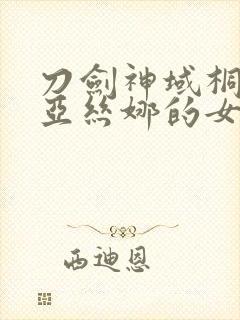 刀劍神域桐
亞絲娜的女
西迪恩